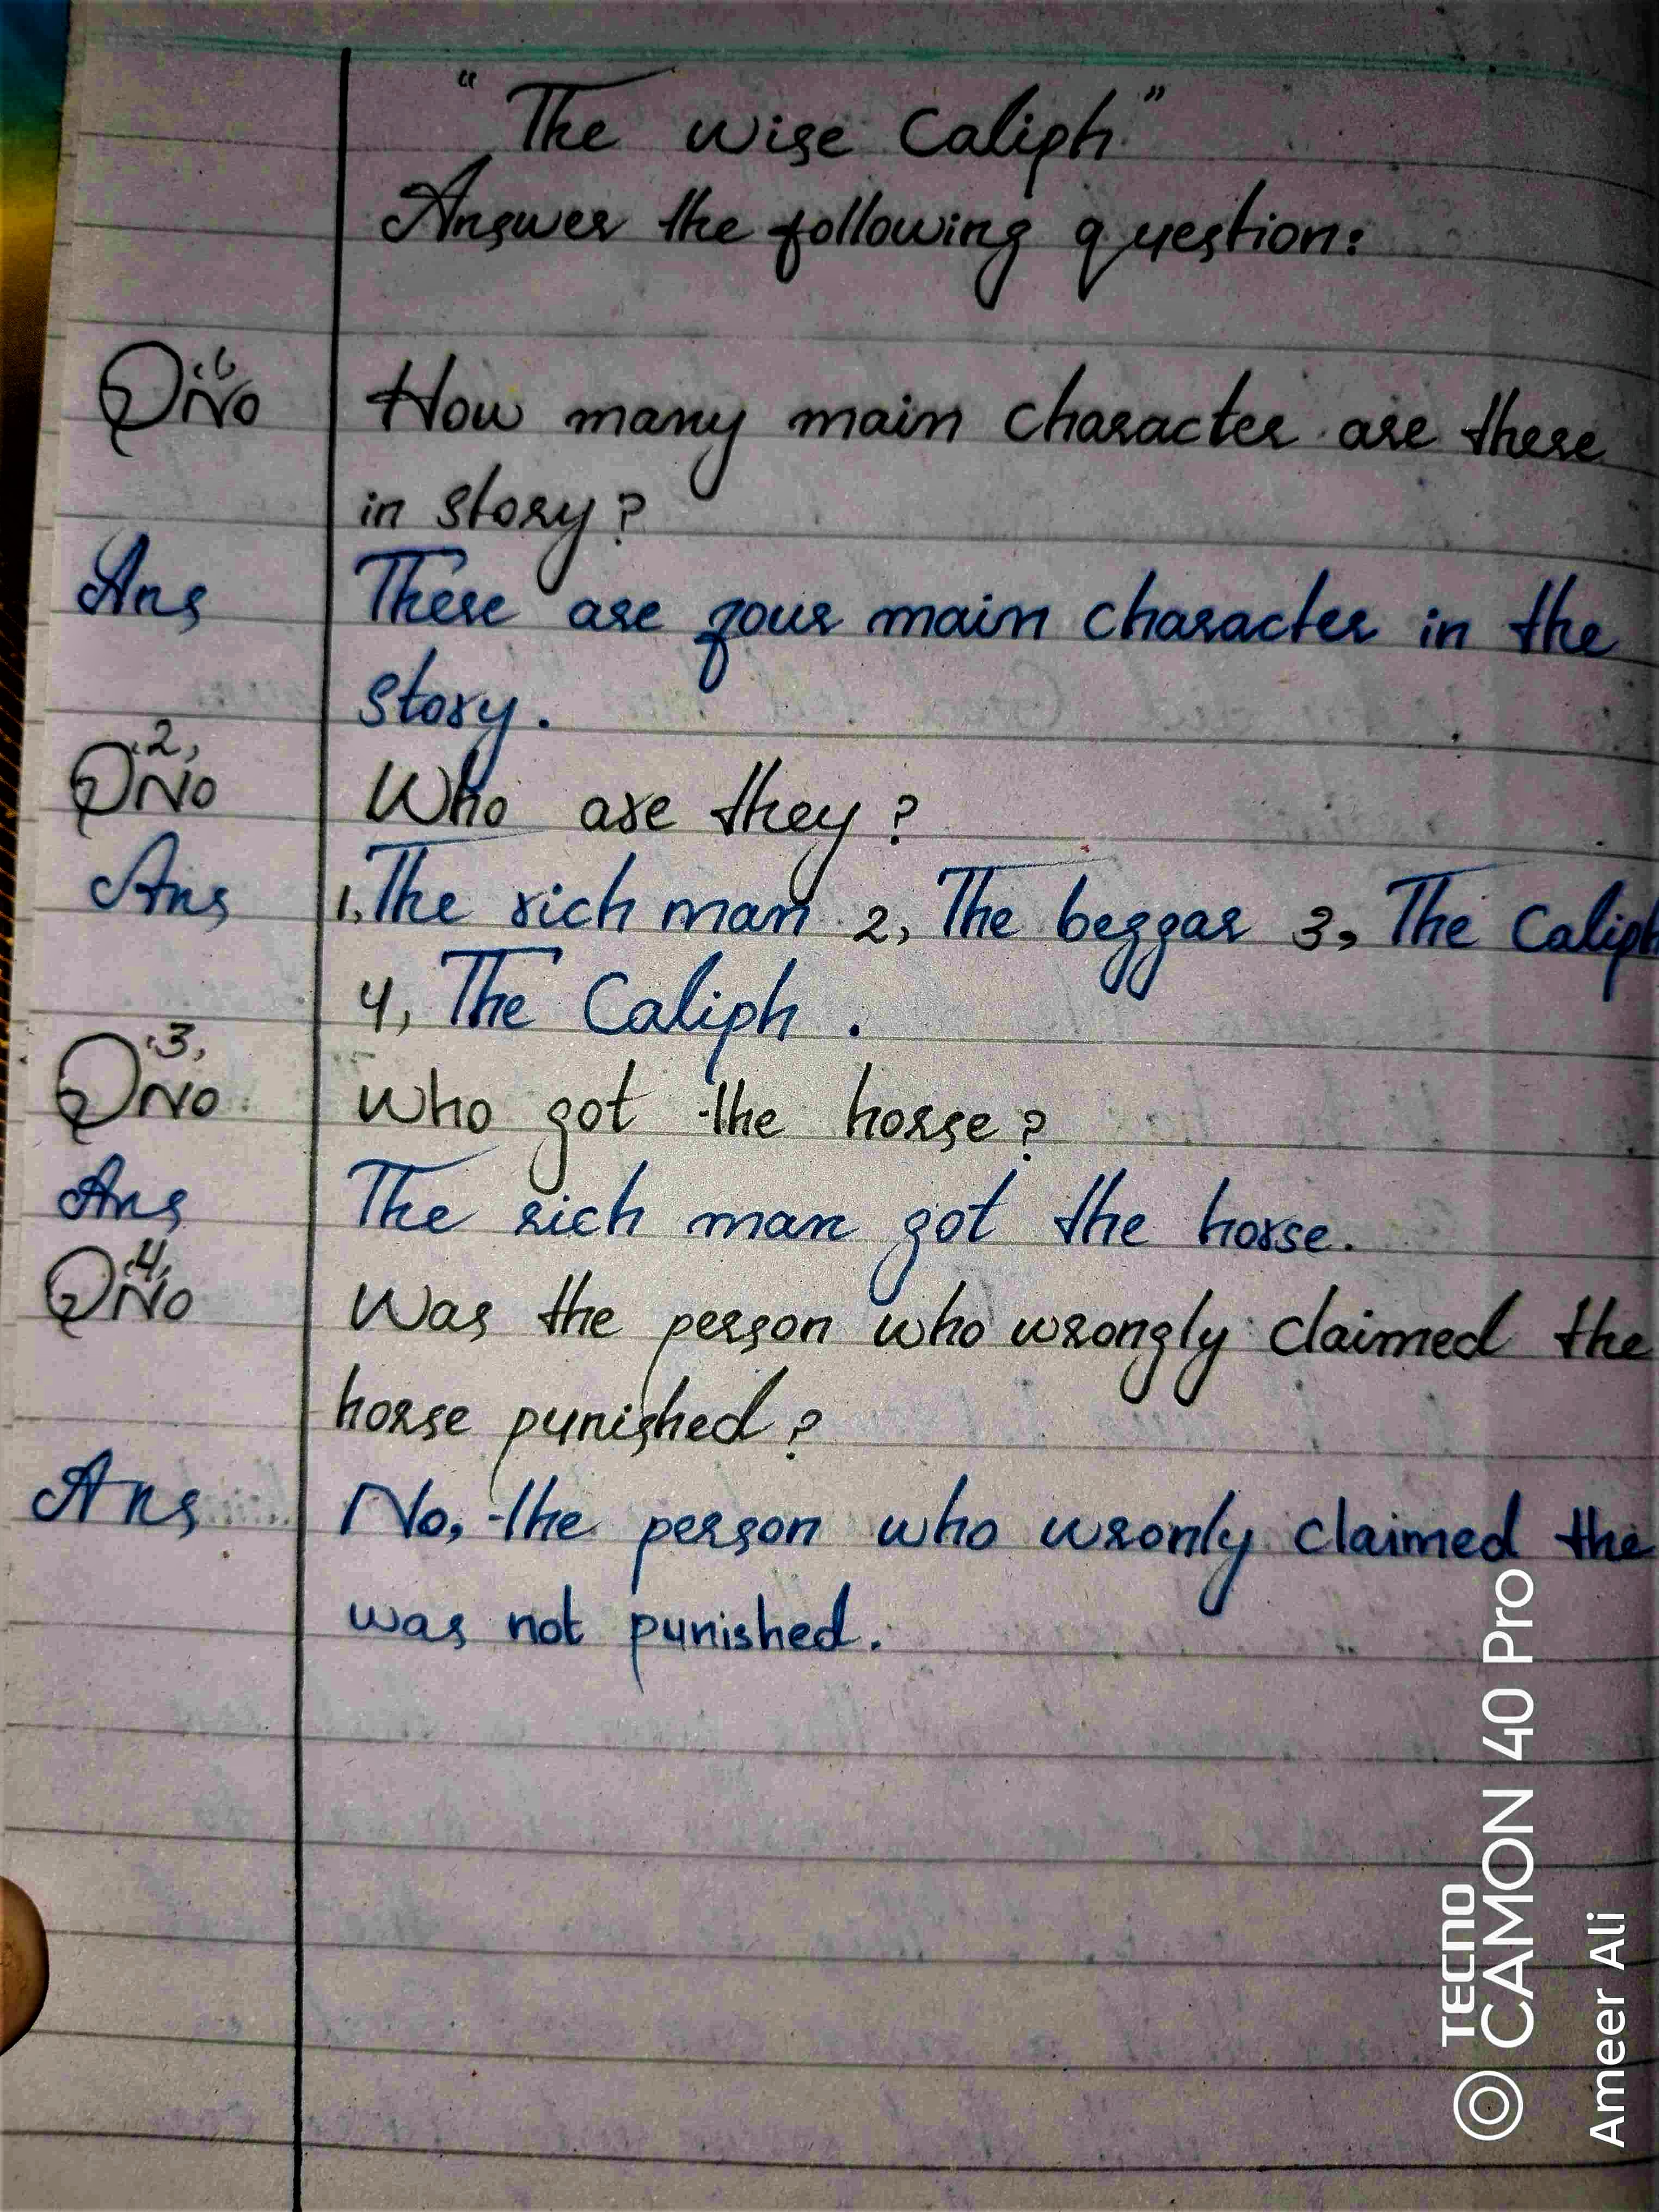 "The wise Caliph"
Answer the following question:
QNo How many main character are there
in story?
Ans There are four main character in the
story.
QNo 2, Who are they?
Ans 1, The rich man 2, The beggar 3, The Caliph
4, The Caliph.
QNo 3, Who got the horse?
Ans The rich man got the horse.
QNo 4, Was the person who wrongly claimed the
horse punished?
Ans No, the person who wronly claimed the
was not punished.
TECNO
CAMON 40 Pro
Ameer Ali